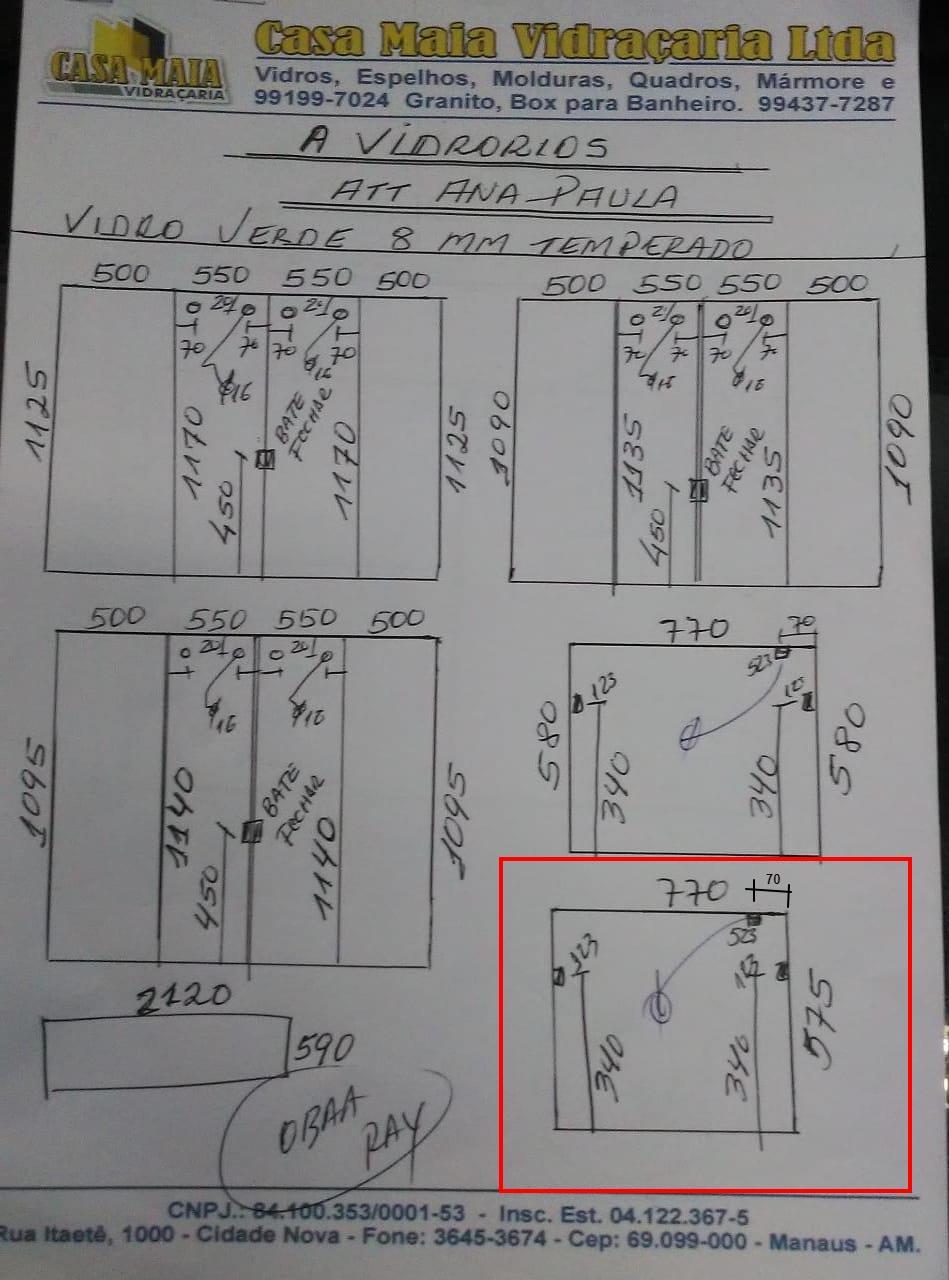 CASA MAIA
VIDRAÇARIA
Casa Maia Vidraçaria Ltda
Vidros, Espelhos, Molduras, Quadros, Mármore e
99199-7024 Granito, Box para Banheiro. 99437-7287
A VIDRORIOS
ATT ANA PAULA
VIDRO VERDE 8 MM TEMPERADO
500 550 550 500
20 20
70 70 70 70
ø16 ø16
1125 1170 1170 1125
BATE
FECHAR
450
500 550 550 500
20 20
70 70 70 70
ø16 ø16
1090 1135 1135 1090
BATE
FECHAR
450
500 550 550 500
20 20
ø16 ø16
1095 1140 1140 1095
BATE
FECHAR
450
770 70
523
123
580 340 340 580
770 70
523
123 123
340 340 575
2120
590
OBAA
RAY
CNPJ.: 84.100.353/0001-53 - Insc. Est. 04.122.367-5
Rua Itaetê, 1000 - Cidade Nova - Fone: 3645-3674 - Cep: 69.099-000 - Manaus - AM.